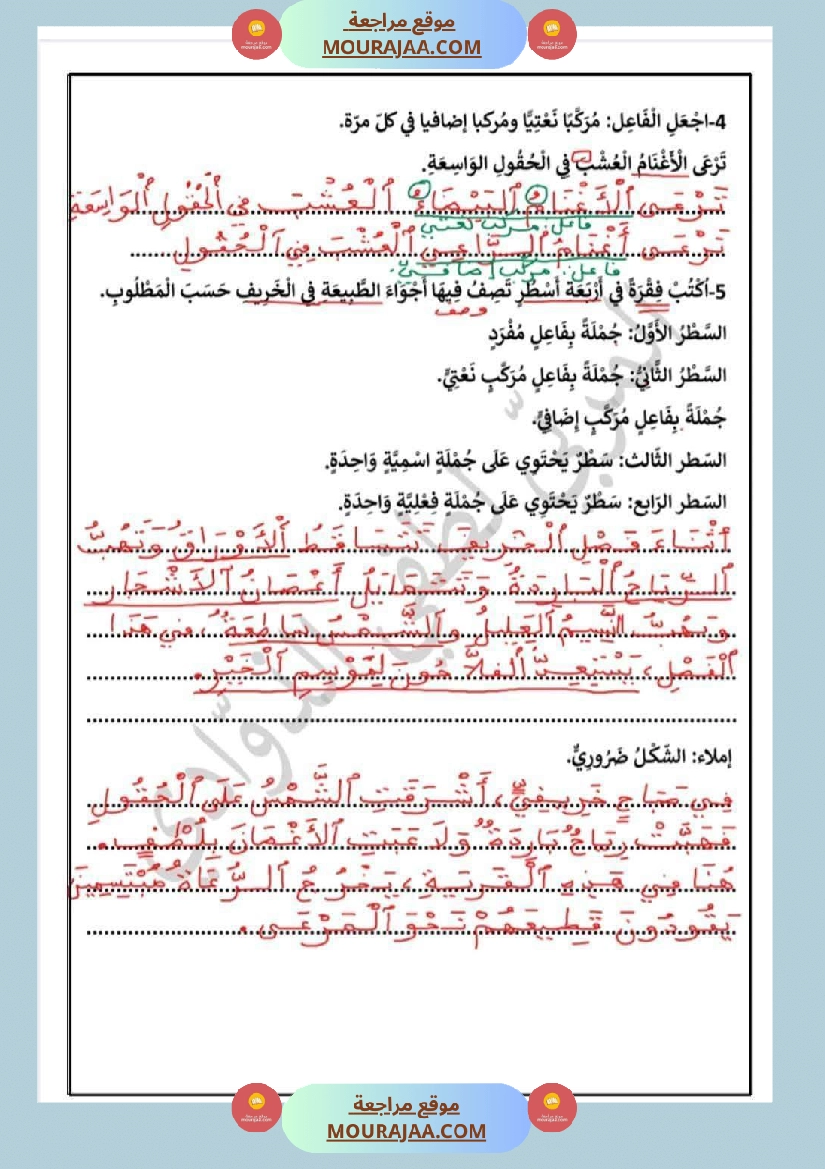 موقع مراجعة
MOURAJAA.COM
4-اجْعَلِ الْفَاعِل: مُرَكَّبًا نَعْتِيًّا ومُركبا إضافيا في كلّ مرّة.
تَرْعَى الْأَغْنَامُ الْعُشْبَ فِي الْحُقُولِ الوَاسِعَةِ.
تَرْعَى الْأَغْنَامُ الْبَيْضَاءُ الْعُشْبَ فِي الْحُقُولِ الْوَاسِعَةِ
فاعل: مركب نعتي
تَرْعَى أَغْنَامُ الرَّاعِي الْعُشْبَ فِي الْحُقُولِ
فاعل: مركب إضافي
5-اُكْتُبْ فِقْرَةً في أَرْبَعَة أَسْطُرٍ تَصِفُ فِيهَا أَجْوَاءَ الطَّبِيعَةِ فِي الْخَرِيفِ حَسَبَ الْمَطْلُوبِ.
وصف
السَّطْرُ الأَوَّلُ: جُمْلَةً بِفَاعِلٍ مُفْرَدٍ
السَّطْرُ الثَّانِيُّ: جُمْلَةً بِفَاعِلٍ مُرَكَّبٍ نَعْتِيٍّ.
جُمْلَةً بِفَاعِلٍ مُرَكَّبٍ إِضَافِيٍّ.
السّطر الثّالث: سَطْرٌ يَحْتَوِي عَلَى جُمْلَةٍ اسْمِيَّةٍ وَاحِدَةٍ.
السّطر الرّابع: سَطْرٌ يَحْتَوِي عَلَى جُمْلَةٍ فِعْلِيَّةٍ وَاحِدَةٍ.
أَثْنَاءَ فَصْلِ الْخَرِيفِ تَتَسَاقَطُ الْأَوْرَاقُ وَتَهُبُّ
الرِّيَاحُ الْبَارِدَةُ وَتَتَمَايَلُ أَغْصَانُ الْأَشْجَارِ
وَيَهُبُّ النَّسِيمُ الْعَلِيلُ والشَّمْسُ سَاطِعَةٌ، فِي هَذَا
الْفَصْلِ، يَسْتَعِدُّ الْفَلَّاحُونَ لِمَوْسِمِ الْخَيْرِ.
إملاء: الشّكْلُ ضَرُورِيٌّ.
فِي صَبَاحٍ خَرِيفِيٍّ، أَشْرَقَتِ الشَّمْسُ عَلَى الْحُقُولِ
فَهَبَّتْ رِيَاحٌ بَارِدَةٌ وَلَاعَبَتِ الْأَغْصَانَ بِلُطْفٍ.
هُنَا فِي هَذِهِ الْقَرْيَةِ، يَخْرُجُ الرُّعَاةُ مُبْتَسِمِينَ
يَقُودُونَ قَطِيعَهُمْ نَحْوَ الْمَرْعَى.
موقع مراجعة
MOURAJAA.COM